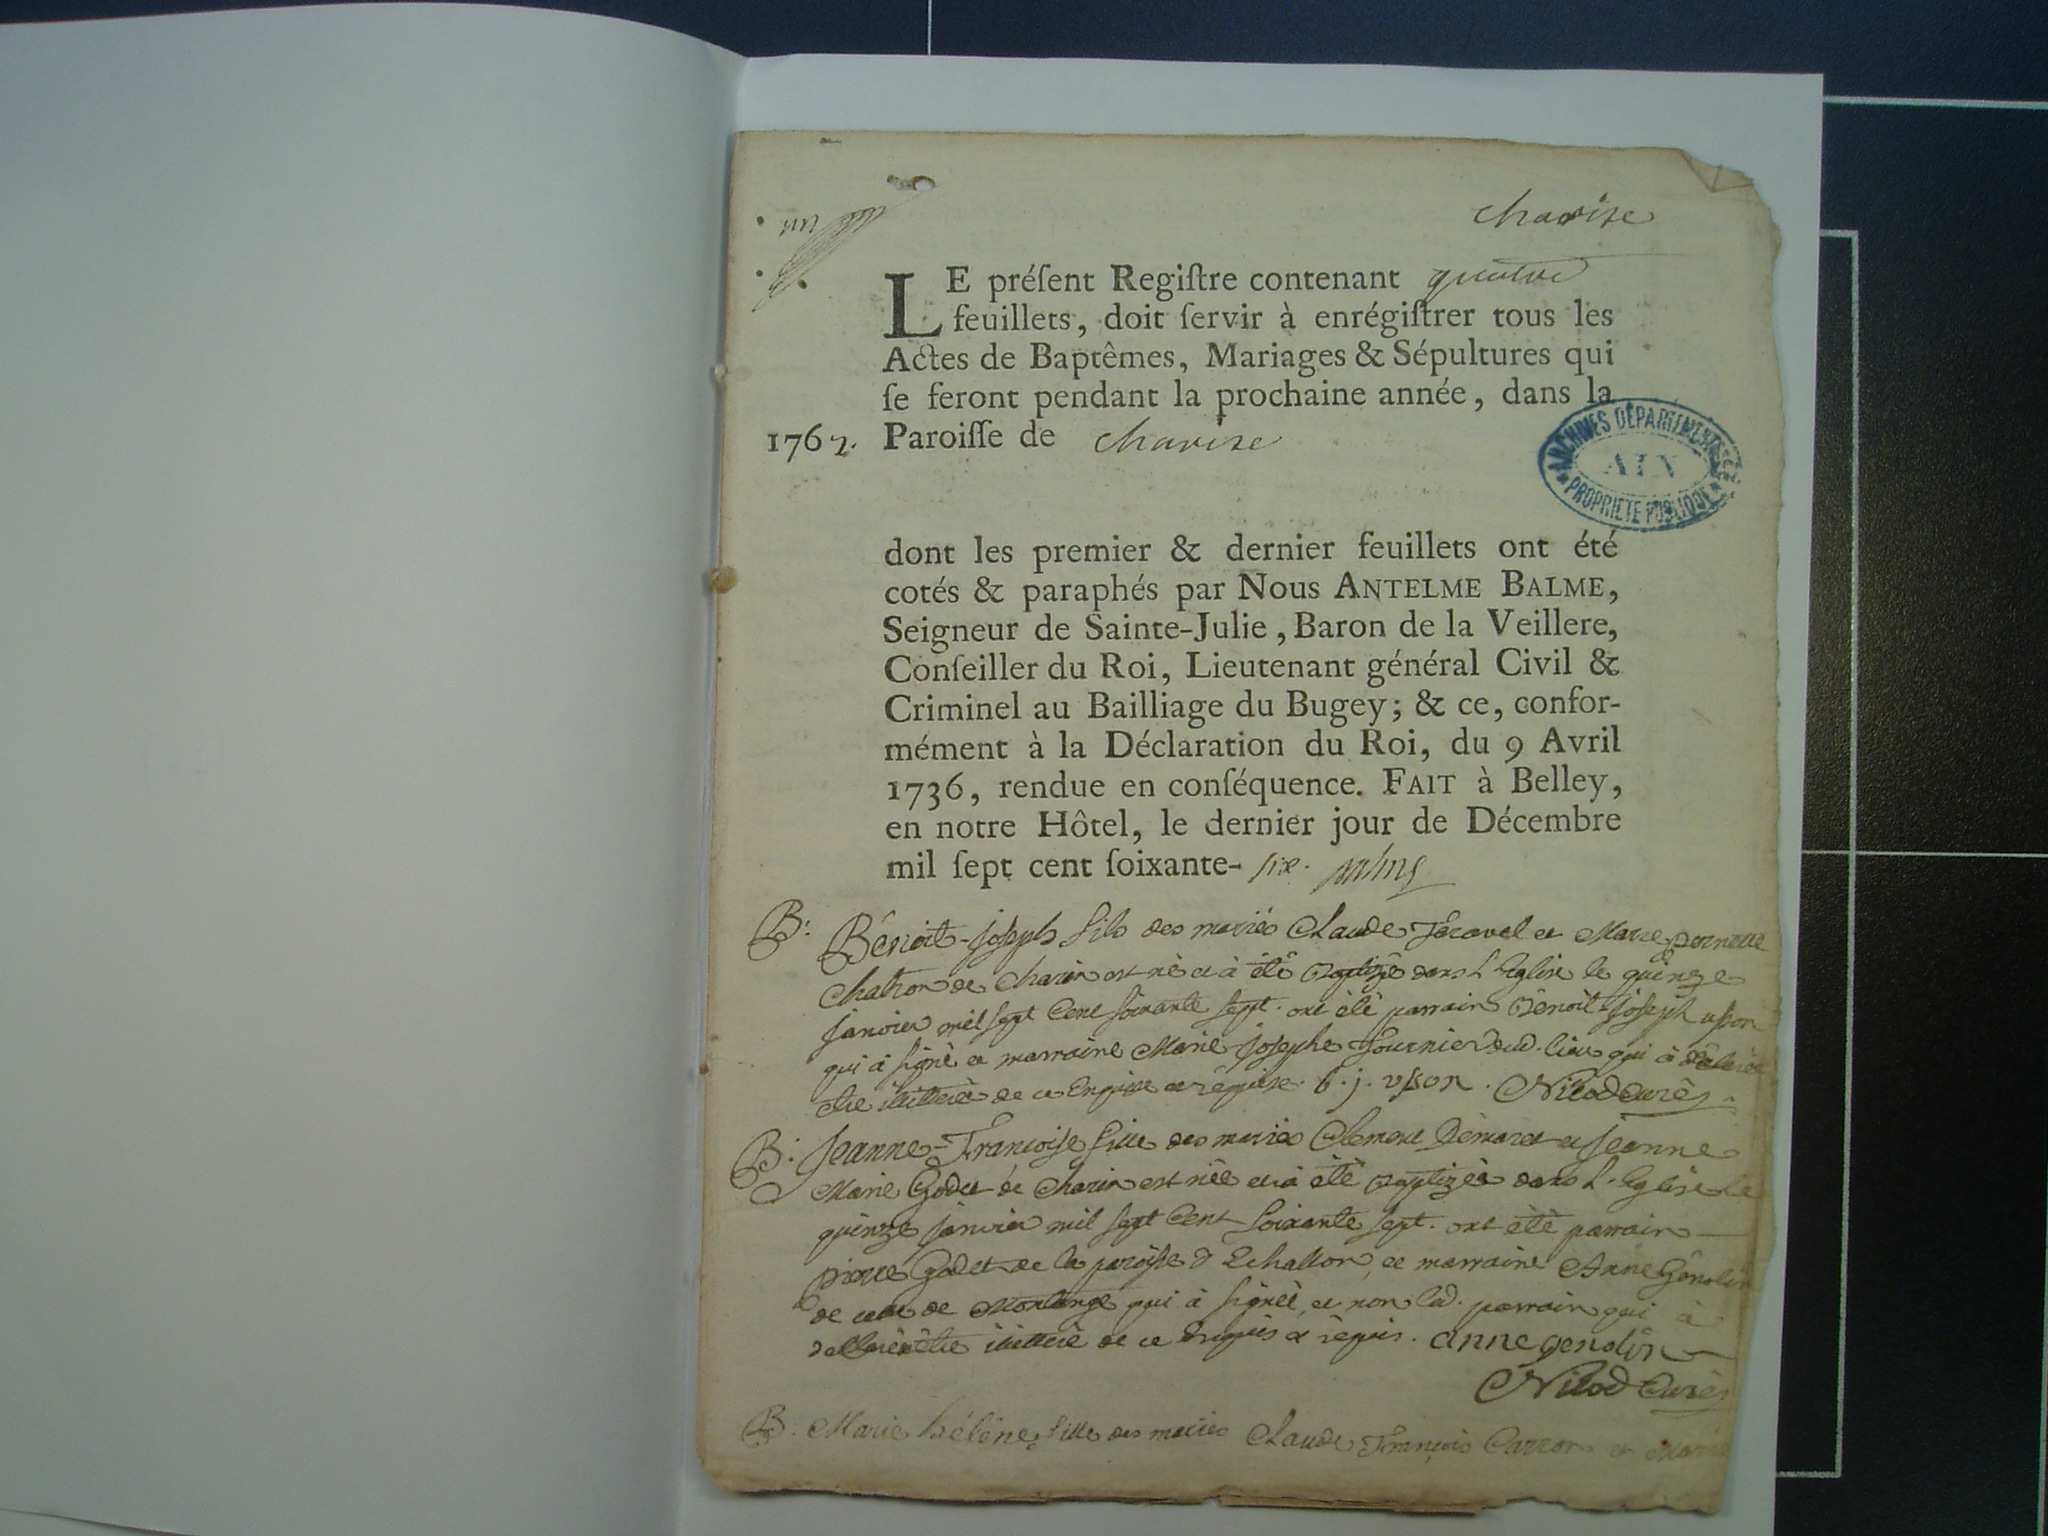 un
charix
LE préſent Regiſtre contenant quatre
feuillets, doit ſervir à enrégiſtrer tous les
Actes de Baptêmes, Mariages & Sépultures qui
ſe feront pendant la prochaine année, dans la
1767. Paroiſſe de charix
ARCHIVES DÉPARTEMENTALES
AIN
PROPRIÉTÉ PUBLIQUE
dont les premier & dernier feuillets ont été
cotés & paraphés par Nous ANTELME BALME,
Seigneur de Sainte-Julie, Baron de la Veillere,
Conſeiller du Roi, Lieutenant général Civil &
Criminel au Bailliage du Bugey; & ce, confor-
mément à la Déclaration du Roi, du 9 Avril
1736, rendue en conſéquence. FAIT à Belley,
en notre Hôtel, le dernier jour de Décembre
mil ſept cent ſoixante- six.
B: Bénoit-joseph fils des mariés Claude et Marie pernette
de charix est né et à été baptizé dans l'Eglise le quinze
janvier mil sept cent soixante sept. ont été parrain Bénoit joseph usson
qui à signé et marraine Marie josephe fournier dud. lieu qui à déclaré
être illitterée de ce Enquise et réquise. b. j. usson. Nilod curé
B: jeanne-Françoise fille des mariés Clement et jeanne
Marie godet de charix est née et à été baptizée dans l'Eglise le
quinze janvier mil sept cent soixante sept. ont été parrain
pierre godet de la paroisse d'Echallon, et marraine Anne génolin
de celle de Montange qui à signée, et non led. parrain qui à
déclaré être illitteré de ce Enquis et réquis. anne genolin
Nilod Curé
B. Marie hélène fille des mariés Claude François Carron et Marie